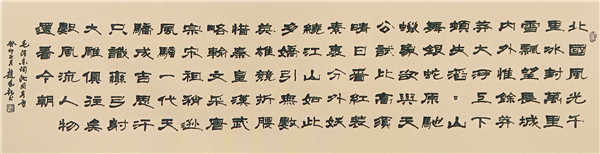 北國風光千
里冰封萬里
雪飄望長城
内外惟餘莽
莽大河上下
頓失滔〻山
舞銀蛇原馳
蠟象欲與天
公試比高須
晴日看紅裝
素裹分外妖
嬈江山如此
多嬌引無數
英雄競折腰
惜秦皇漢武
略輸文采唐
宗宋祖稍遜
風騷一代天
驕成吉思汗
只識彎弓射
大雕俱往矣
數風流人物
還看今朝
毛澤東詞沁園春雪
癸卯